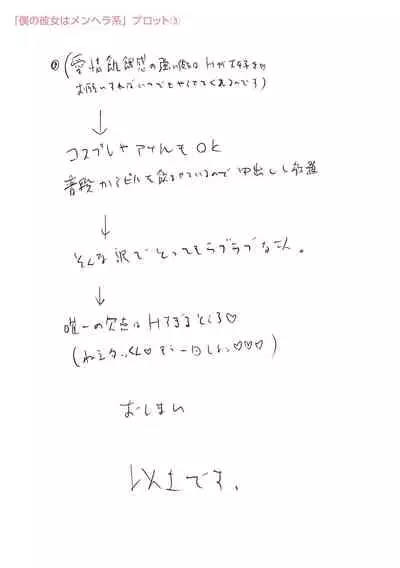 「僕の彼女はメンヘラ系」プロット③
⑧(愛情飢餓感の強い彼女はHが大好きで
お願いすればいつでもやらせてくれるのです)
↓
コスプレやアイテムもOK
普段からピルを飲ませているので中出しし放題
↓
そんな訳でとってもラブラブな二人。
↓
唯一の欠点はHすぎるところ♡
(ねえタッくん♡もう一回しよっ♡♡♡)
おしまい
以上です。